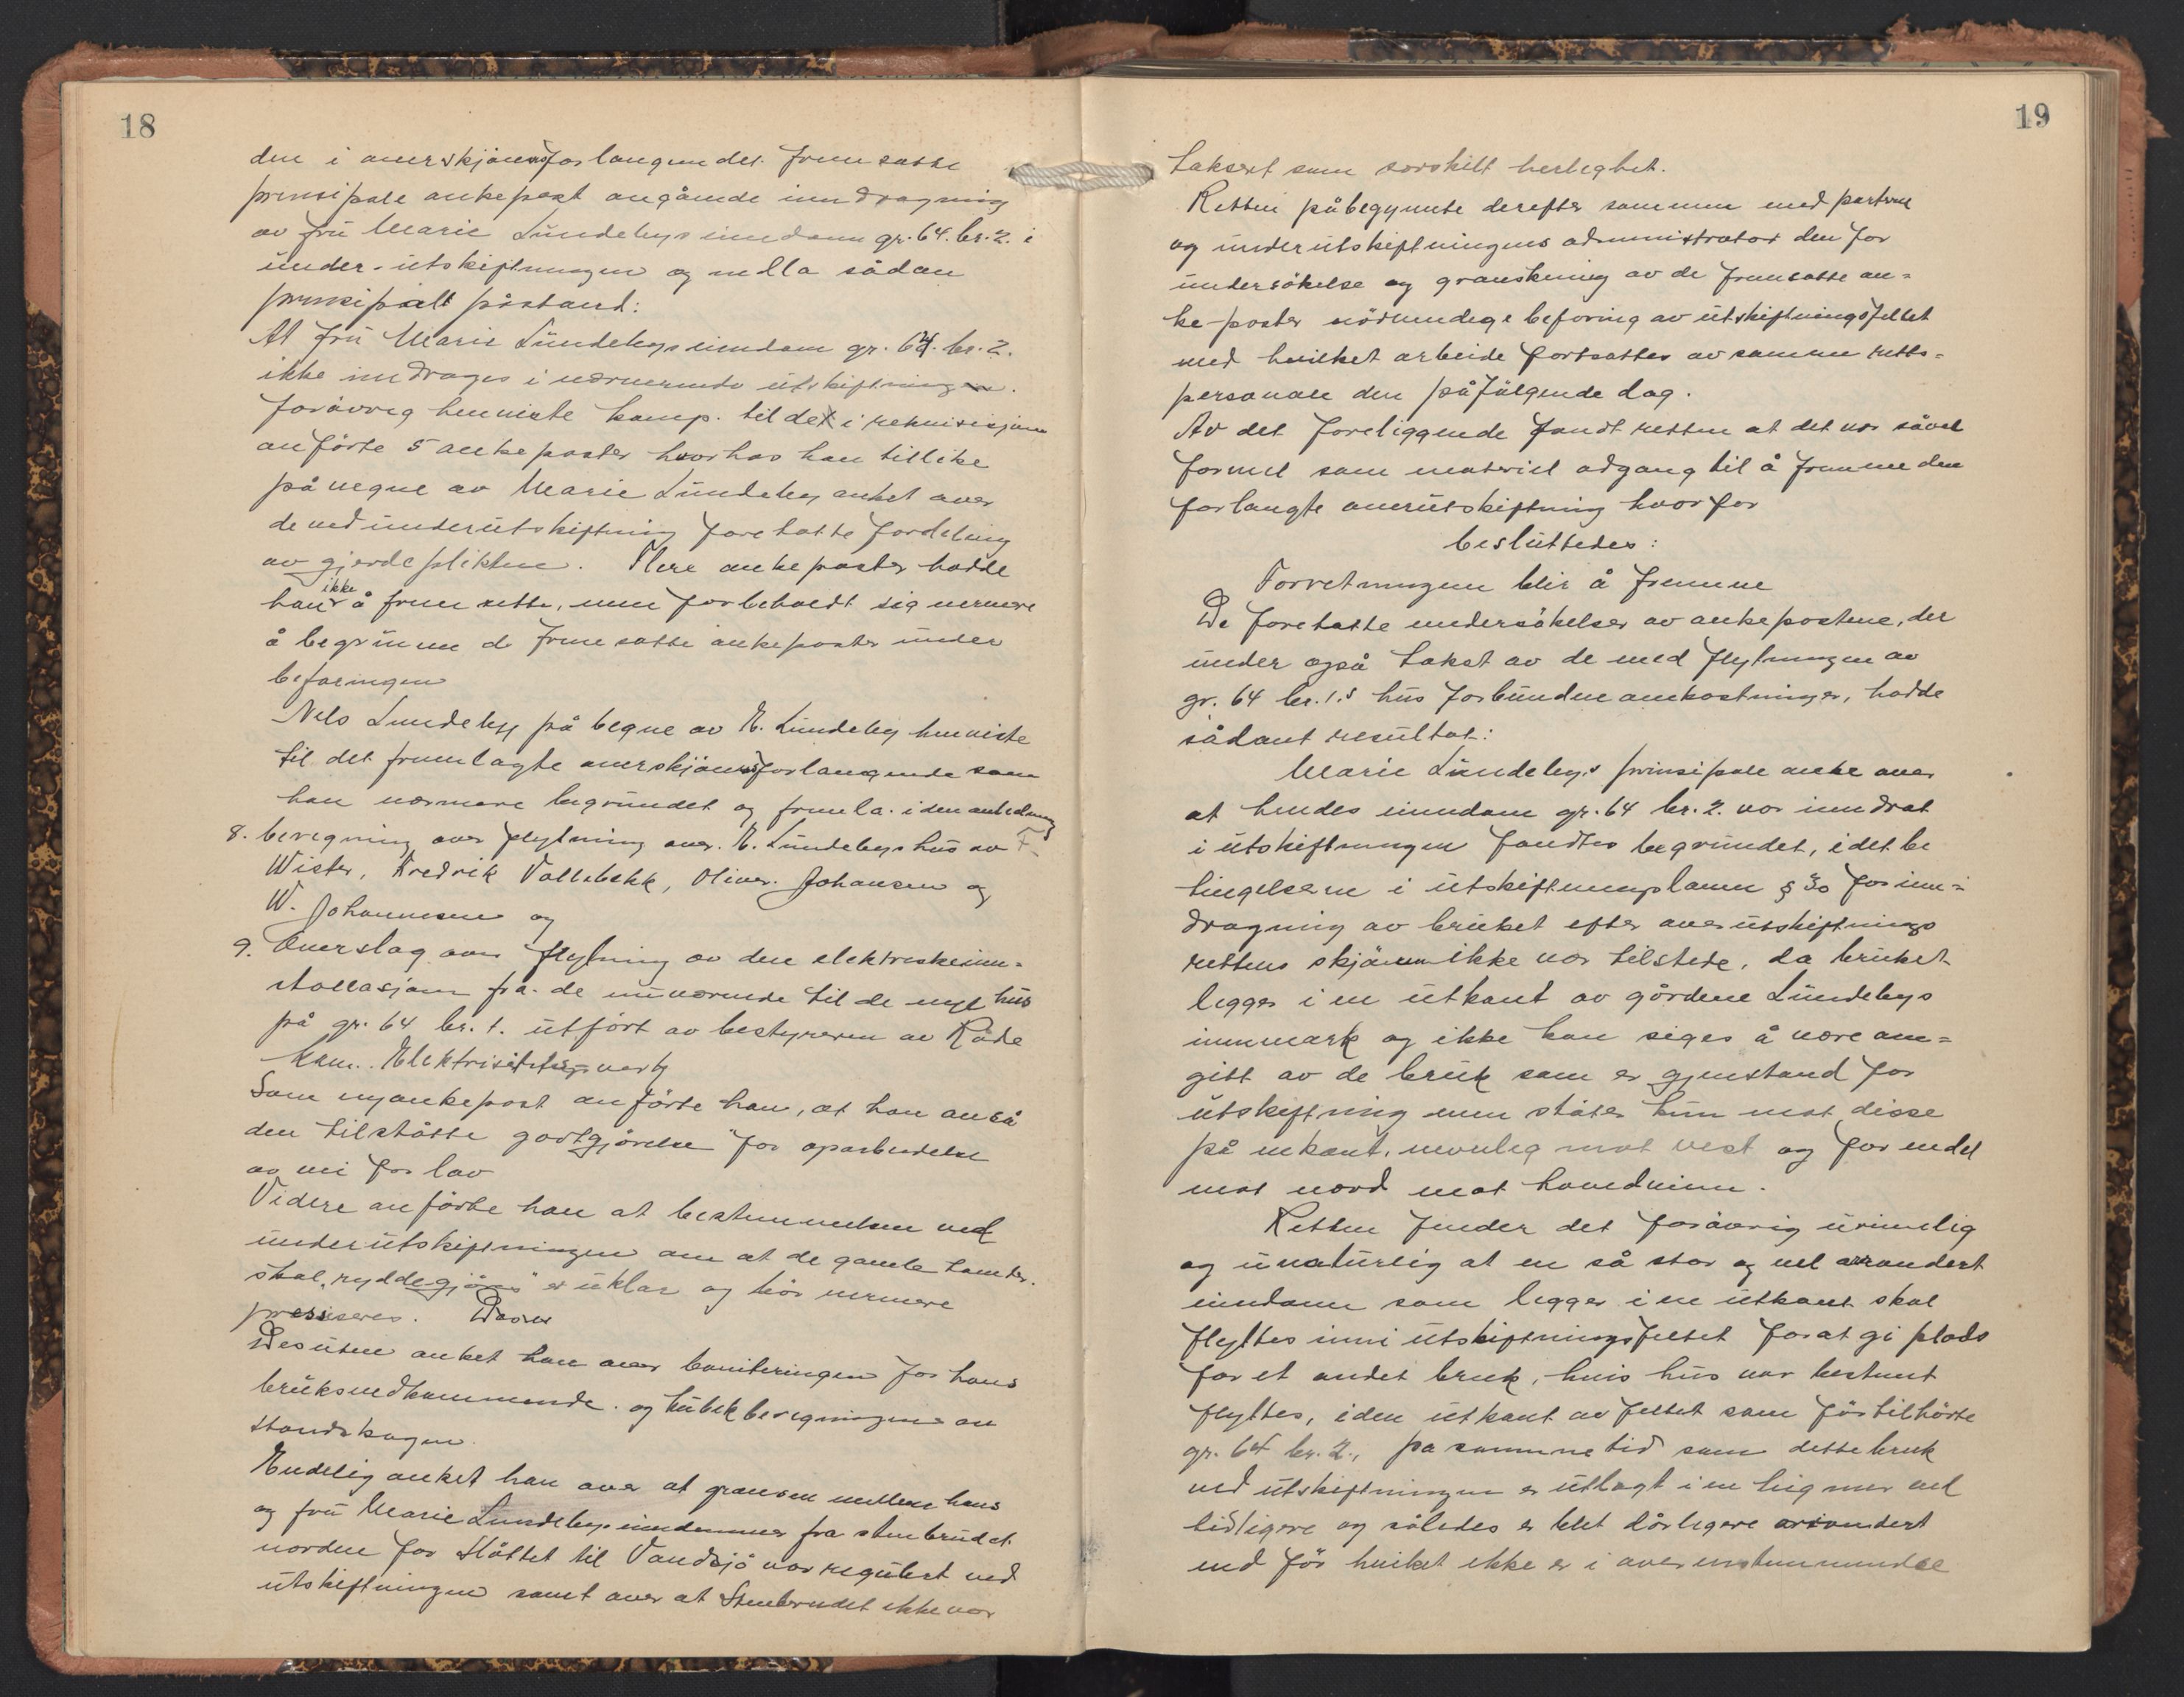 18
den i overskjønsforlangendet fremsatte
prinsipale ankepost angående inndragning
av fru Marie Lundebys eiendom gr. 64. br. 2. i
under-utskiftningen og nedla sådan
prinsipalt påstand:
At fru Marie Lundebys eiendom gr. 64. br. 2.
ikke inndrages i nærværende utskiftning.
Forøvrig henviste komp. til de i rekvisisjonen
anførte 5 ankeposter hvorhos han tillike
på vegne av Marie Lundeby anket over
de ved underutskiftning foretatte fordeling
av gjerdeplikten. Flere ankeposter hadde
han ikke å fremsette, men forbeholdt sig nermere
å begrunne de fremsatte ankeposter under
befaringen
Nils Lundeby på begne av E. Lundeby henviste
til det fremlagte overskjønsforlangende som
han nærmere begrundet og fremla i den anledning
8. beregning over flytning over E. Lundebys hus av F.
Wister, Fredrik Vallebekk, Oliver Johansen og
W. Johannesen og
9. Overslag over flytning av den elektriske inn-
stallasjon fra de nuværende til de nye hus
på gr. 64 br. 1. utført av bestyreren av Råde
kom. Elektrisitetsverk
Som ny ankepost anførte han, at han anså
den tilståtte godtgjørelse for oparbeidelse
av vei for lav
Videre anførte han at bestemmelsen ved
underutskiftningen om at de gamle tomter
skal "ryddegjøres" er uklar og bør nermere
presiseres.
Desuten anket han over boniteringen for hans
bruks vedkommende og kubikkberegningen av
standskogen.
Endelig anket han over at grensen mellem hans
og fru Marie Lundebys eiendommer fra stenbrudet
norden for Slottet til Vandsjø var regulert ved
utskiftningen samt over at Stenbrudet ikke var
19
taksert som særskilt herlighet.
Retten påbegynnte derefter sammen med partene
og underutskiftningens administrator den for
undersøkelse og granskning av de fremsatte an-
ke-poster nødvendige befaring av utskiftningsfeltet
med hvilket arbeide fortsattes av samme retts-
personale den påfølgende dag.
Av det foreliggende fandt retten at det var såvel
formel som materiel adgang til å fremme den
forlangte overutskiftning hvorfor
besluttedes:
Forretningen blir å fremme
De foretatte undersøkelser av ankepostene, der
under også takst av de med flytningen av
gr. 64 br. 1.s hus forbundne omkostninger, hadde
sådant resultat:
Marie Lundeby's prinsipale anke over
at hendes eiendom gr. 64 br. 2. var inndrat
i utskiftningen fandtes begrundet, idet be
tingelserne i utskiftningsloven § 30 for inn-
dragning av bruket efter overutskiftnings
rettens skjønn ikke var tilstede, da bruket
ligger i en utkant av gårdene Lundebys
innmark og ikke kan siges å være om-
gitt av de bruk som er gjenstand for
utskiftning men støter kun mot disse
på en kant, nemlig mot vest og for en del
mot nord mot hovedveien.
Retten finder det forøvrig urimelig
og unaturlig at en så stor og vel arrondert
eiendom som ligger i en utkant skal
flyttes inn i utskiftningsfeltet for at gi plads
for et andet bruk, hvis hus var bestemt
flyttes, i den utkant av feltet som før tilhørte
gr. 64 br. 2., på samme tid som dette bruk
ved utskiftningen er utlagt i en teig mer enn
tidligere og således er blit dårligere arrondert
end før hvilket ikke er i overensstemmelse